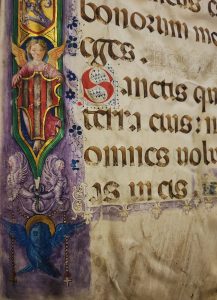 bonorum me
eges.
Sanctis qu
terra eius: m
omnes volu
as in eis.